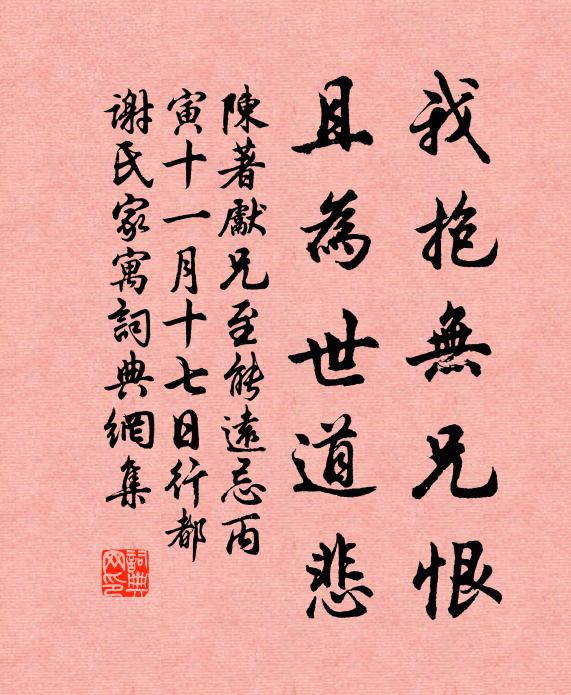 我抱無兄恨
且為世道悲
陳著獻兄至能遠忌丙
寅十一月十七日行都
谢氏家寓詞典網集
詞典网印